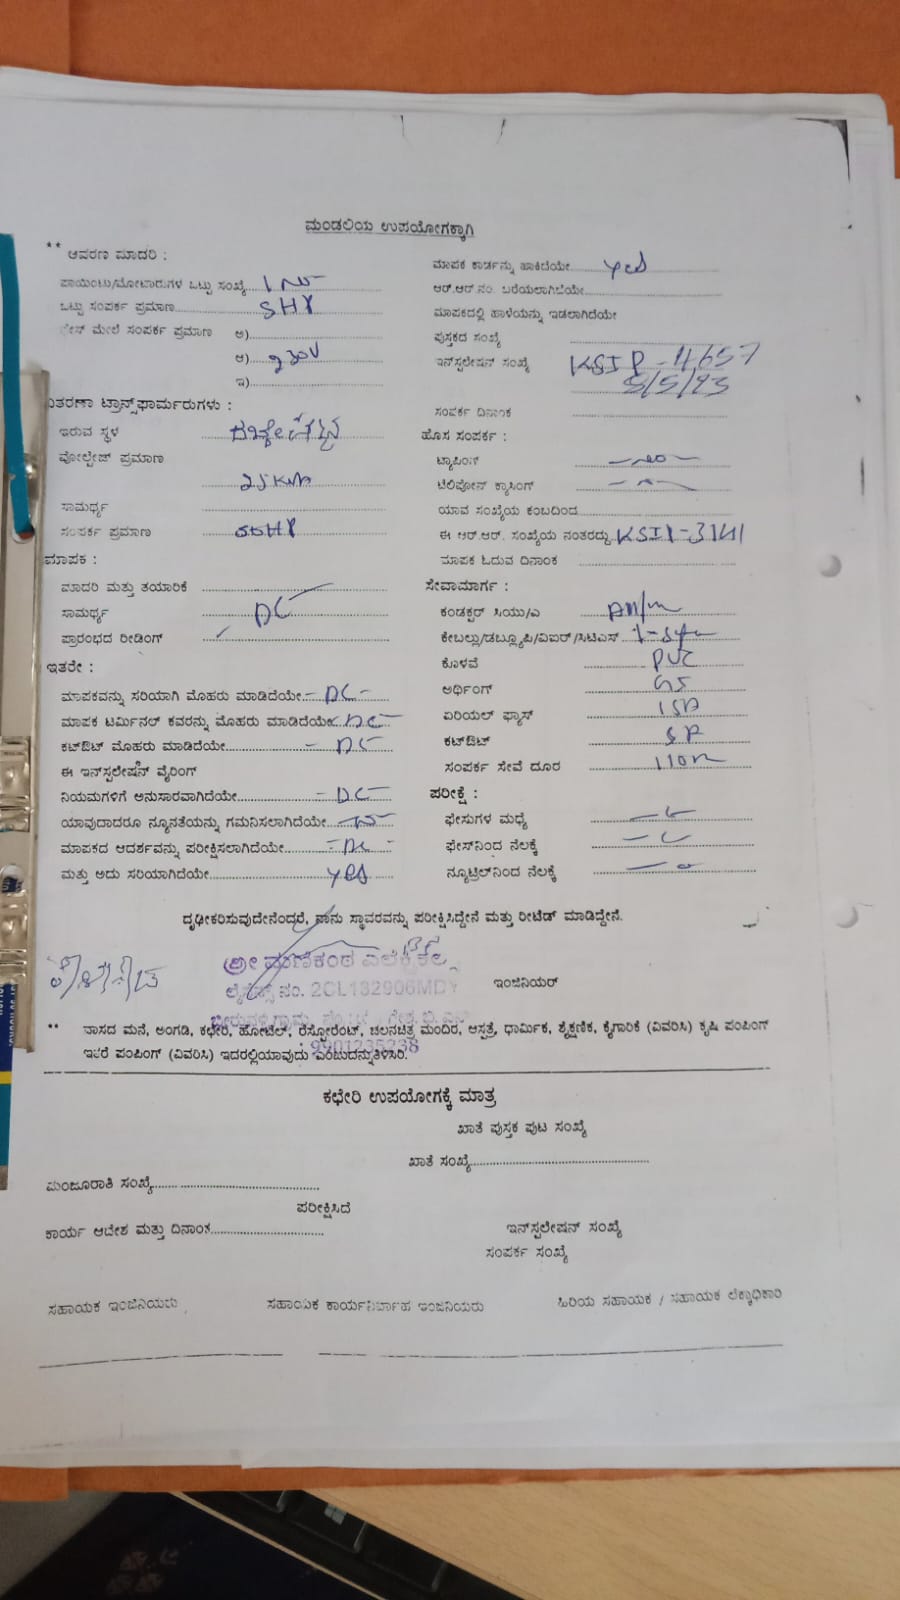 ಮಂಡಲಿಯ ಉಪಯೋಗಕ್ಕಾಗಿ
** ಆವರಣ ಮಾದರಿ :
ಪಾಯಿಂಟು/ಮೋಟಾರುಗಳ ಒಟ್ಟು ಸಂಖ್ಯೆ.... 1 No
ಒಟ್ಟು ಸಂಪರ್ಕ ಪ್ರಮಾಣ.... 5HP
ಫೇಸ್ ಮೇಲೆ ಸಂಪರ್ಕ ಪ್ರಮಾಣ ಅ)....
ಆ).... 230V
ಇ)....
ವಿತರಣಾ ಟ್ರಾನ್ಸ್‌ಫಾರ್ಮರುಗಳು :
ಇರುವ ಸ್ಥಳ
ವೋಲ್ಟೇಜ್ ಪ್ರಮಾಣ
25KVA
ಸಾಮರ್ಥ್ಯ
ಸಂಪರ್ಕ ಪ್ರಮಾಣ
ಮಾಪಕ :
ಮಾದರಿ ಮತ್ತು ತಯಾರಿಕೆ
ಸಾಮರ್ಥ್ಯ DC
ಪ್ರಾರಂಭದ ರೀಡಿಂಗ್
ಇತರೇ :
ಮಾಪಕವನ್ನು ಸರಿಯಾಗಿ ಮೊಹರು ಮಾಡಿದೆಯೇ - DC -
ಮಾಪಕ ಟರ್ಮಿನಲ್ ಕವರನ್ನು ಮೊಹರು ಮಾಡಿದೆಯೇ DC -
ಕಟ್‌ಔಟ್ ಮೊಹರು ಮಾಡಿದೆಯೇ.... - DC -
ಈ ಇನ್‌ಸ್ಟಲೇಷನ್ ವೈರಿಂಗ್
ನಿಯಮಗಳಿಗೆ ಅನುಸಾರವಾಗಿದೆಯೇ.... - DC -
ಯಾವುದಾದರೂ ನ್ಯೂನತೆಯನ್ನು ಗಮನಿಸಲಾಗಿದೆಯೇ....
ಮಾಪಕದ ಆದರ್ಶವನ್ನು ಪರೀಕ್ಷಿಸಲಾಗಿದೆಯೇ.... - DC -
ಮತ್ತು ಅದು ಸರಿಯಾಗಿದೆಯೇ.... yes
ಮಾಪಕ ಕಾರ್ಡನ್ನು ಹಾಕಿದೆಯೇ.... yes
ಆರ್.ಆರ್.ನಂ. ಬರೆಯಲಾಗಿದೆಯೇ....
ಮಾಪಕದಲ್ಲಿ ಹಾಳೆಯನ್ನು ಇಡಲಾಗಿದೆಯೇ
ಪುಸ್ತಕದ ಸಂಖ್ಯೆ
ಇನ್‌ಸ್ಟಲೇಷನ್ ಸಂಖ್ಯೆ KSIP-4657
5/5/93
ಸಂಪರ್ಕ ದಿನಾಂಕ
ಹೊಸ ಸಂಪರ್ಕ :
ಟ್ಯಾಪಿಂಗ್ - no -
ಟೆಲಿಫೋನ್ ಕ್ರಾಸಿಂಗ್
ಯಾವ ಸಂಖ್ಯೆಯ ಕಂಬದಿಂದ
ಈ ಆರ್.ಆರ್. ಸಂಖ್ಯೆಯ ನಂತರದ್ದು KSIP-3141
ಮಾಪಕ ಓದುವ ದಿನಾಂಕ
ಸೇವಾಮಾರ್ಗ :
ಕಂಡಕ್ಟರ್ ಸಿಯು/ಎ
ಕೇಬಲ್ಲು/ಡಬ್ಲ್ಯೂಪಿ/ವಿಐಆರ್/ಸಿಟಿಎಸ್
ಕೊಳವೆ PVC
ಅರ್ಥಿಂಗ್ GI
ಏರಿಯಲ್ ಫ್ಯೂಸ್ 15A
ಕಟ್‌ಔಟ್
ಸಂಪರ್ಕ ಸೇವೆ ದೂರ 110m
ಪರೀಕ್ಷೆ :
ಫೇಸುಗಳ ಮಧ್ಯೆ
ಫೇಸ್‌ನಿಂದ ನೆಲಕ್ಕೆ
ನ್ಯೂಟ್ರಲ್‌ನಿಂದ ನೆಲಕ್ಕೆ
ದೃಢೀಕರಿಸುವುದೇನೆಂದರೆ, ನಾನು ಸ್ಥಾವರವನ್ನು ಪರೀಕ್ಷಿಸಿದ್ದೇನೆ ಮತ್ತು ರೀಟೆಡ್ ಮಾಡಿದ್ದೇನೆ.
ಶ್ರೀ ಮಣಿಕಂಠ ಎಲೆಕ್ಟ್ರಿಕಲ್ಸ್
ಲೈಸೆನ್ಸ್ ನಂ. 2CL132906MDY
ಇಂಜಿನಿಯರ್
9901235238
** ವಾಸದ ಮನೆ, ಅಂಗಡಿ, ಕಛೇರಿ, ಹೋಟೆಲ್, ರೆಸ್ಟೋರೆಂಟ್, ಚಲನಚಿತ್ರ ಮಂದಿರ, ಆಸ್ಪತ್ರೆ, ಧಾರ್ಮಿಕ, ಶೈಕ್ಷಣಿಕ, ಕೈಗಾರಿಕೆ (ವಿವರಿಸಿ) ಕೃಷಿ ಪಂಪಿಂಗ್
ಇತರೆ ಪಂಪಿಂಗ್ (ವಿವರಿಸಿ) ಇದರಲ್ಲಿಯಾವುದು ಎಂಬುದನ್ನುತಿಳಿಸಿರಿ.
ಕಛೇರಿ ಉಪಯೋಗಕ್ಕೆ ಮಾತ್ರ
ಖಾತೆ ಪುಸ್ತಕ ಪುಟ ಸಂಖ್ಯೆ
ಖಾತೆ ಸಂಖ್ಯೆ....
ಮಂಜೂರಾತಿ ಸಂಖ್ಯೆ....
ಪರೀಕ್ಷಿಸಿದೆ
ಕಾರ್ಯ ಆದೇಶ ಮತ್ತು ದಿನಾಂಕ.... ಇನ್‌ಸ್ಟಲೇಷನ್ ಸಂಖ್ಯೆ
ಸಂಪರ್ಕ ಸಂಖ್ಯೆ
ಸಹಾಯಕ ಇಂಜಿನಿಯರು ಸಹಾಯಕ ಕಾರ್ಯನಿರ್ವಾಹ ಇಂಜನಿಯರು ಹಿರಿಯ ಸಹಾಯಕ / ಸಹಾಯಕ ಲೆಕ್ಕಾಧಿಕಾರಿ